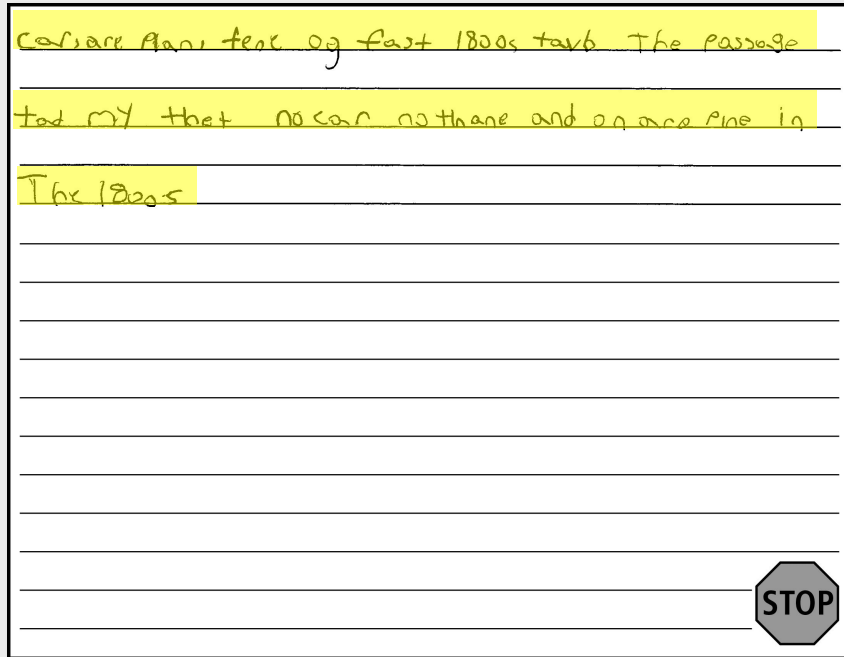 carsare Plans tenc og fast 1800s tavb The Passage
tod my thet no can no thane and on are Pine in
The 1800s
STOP